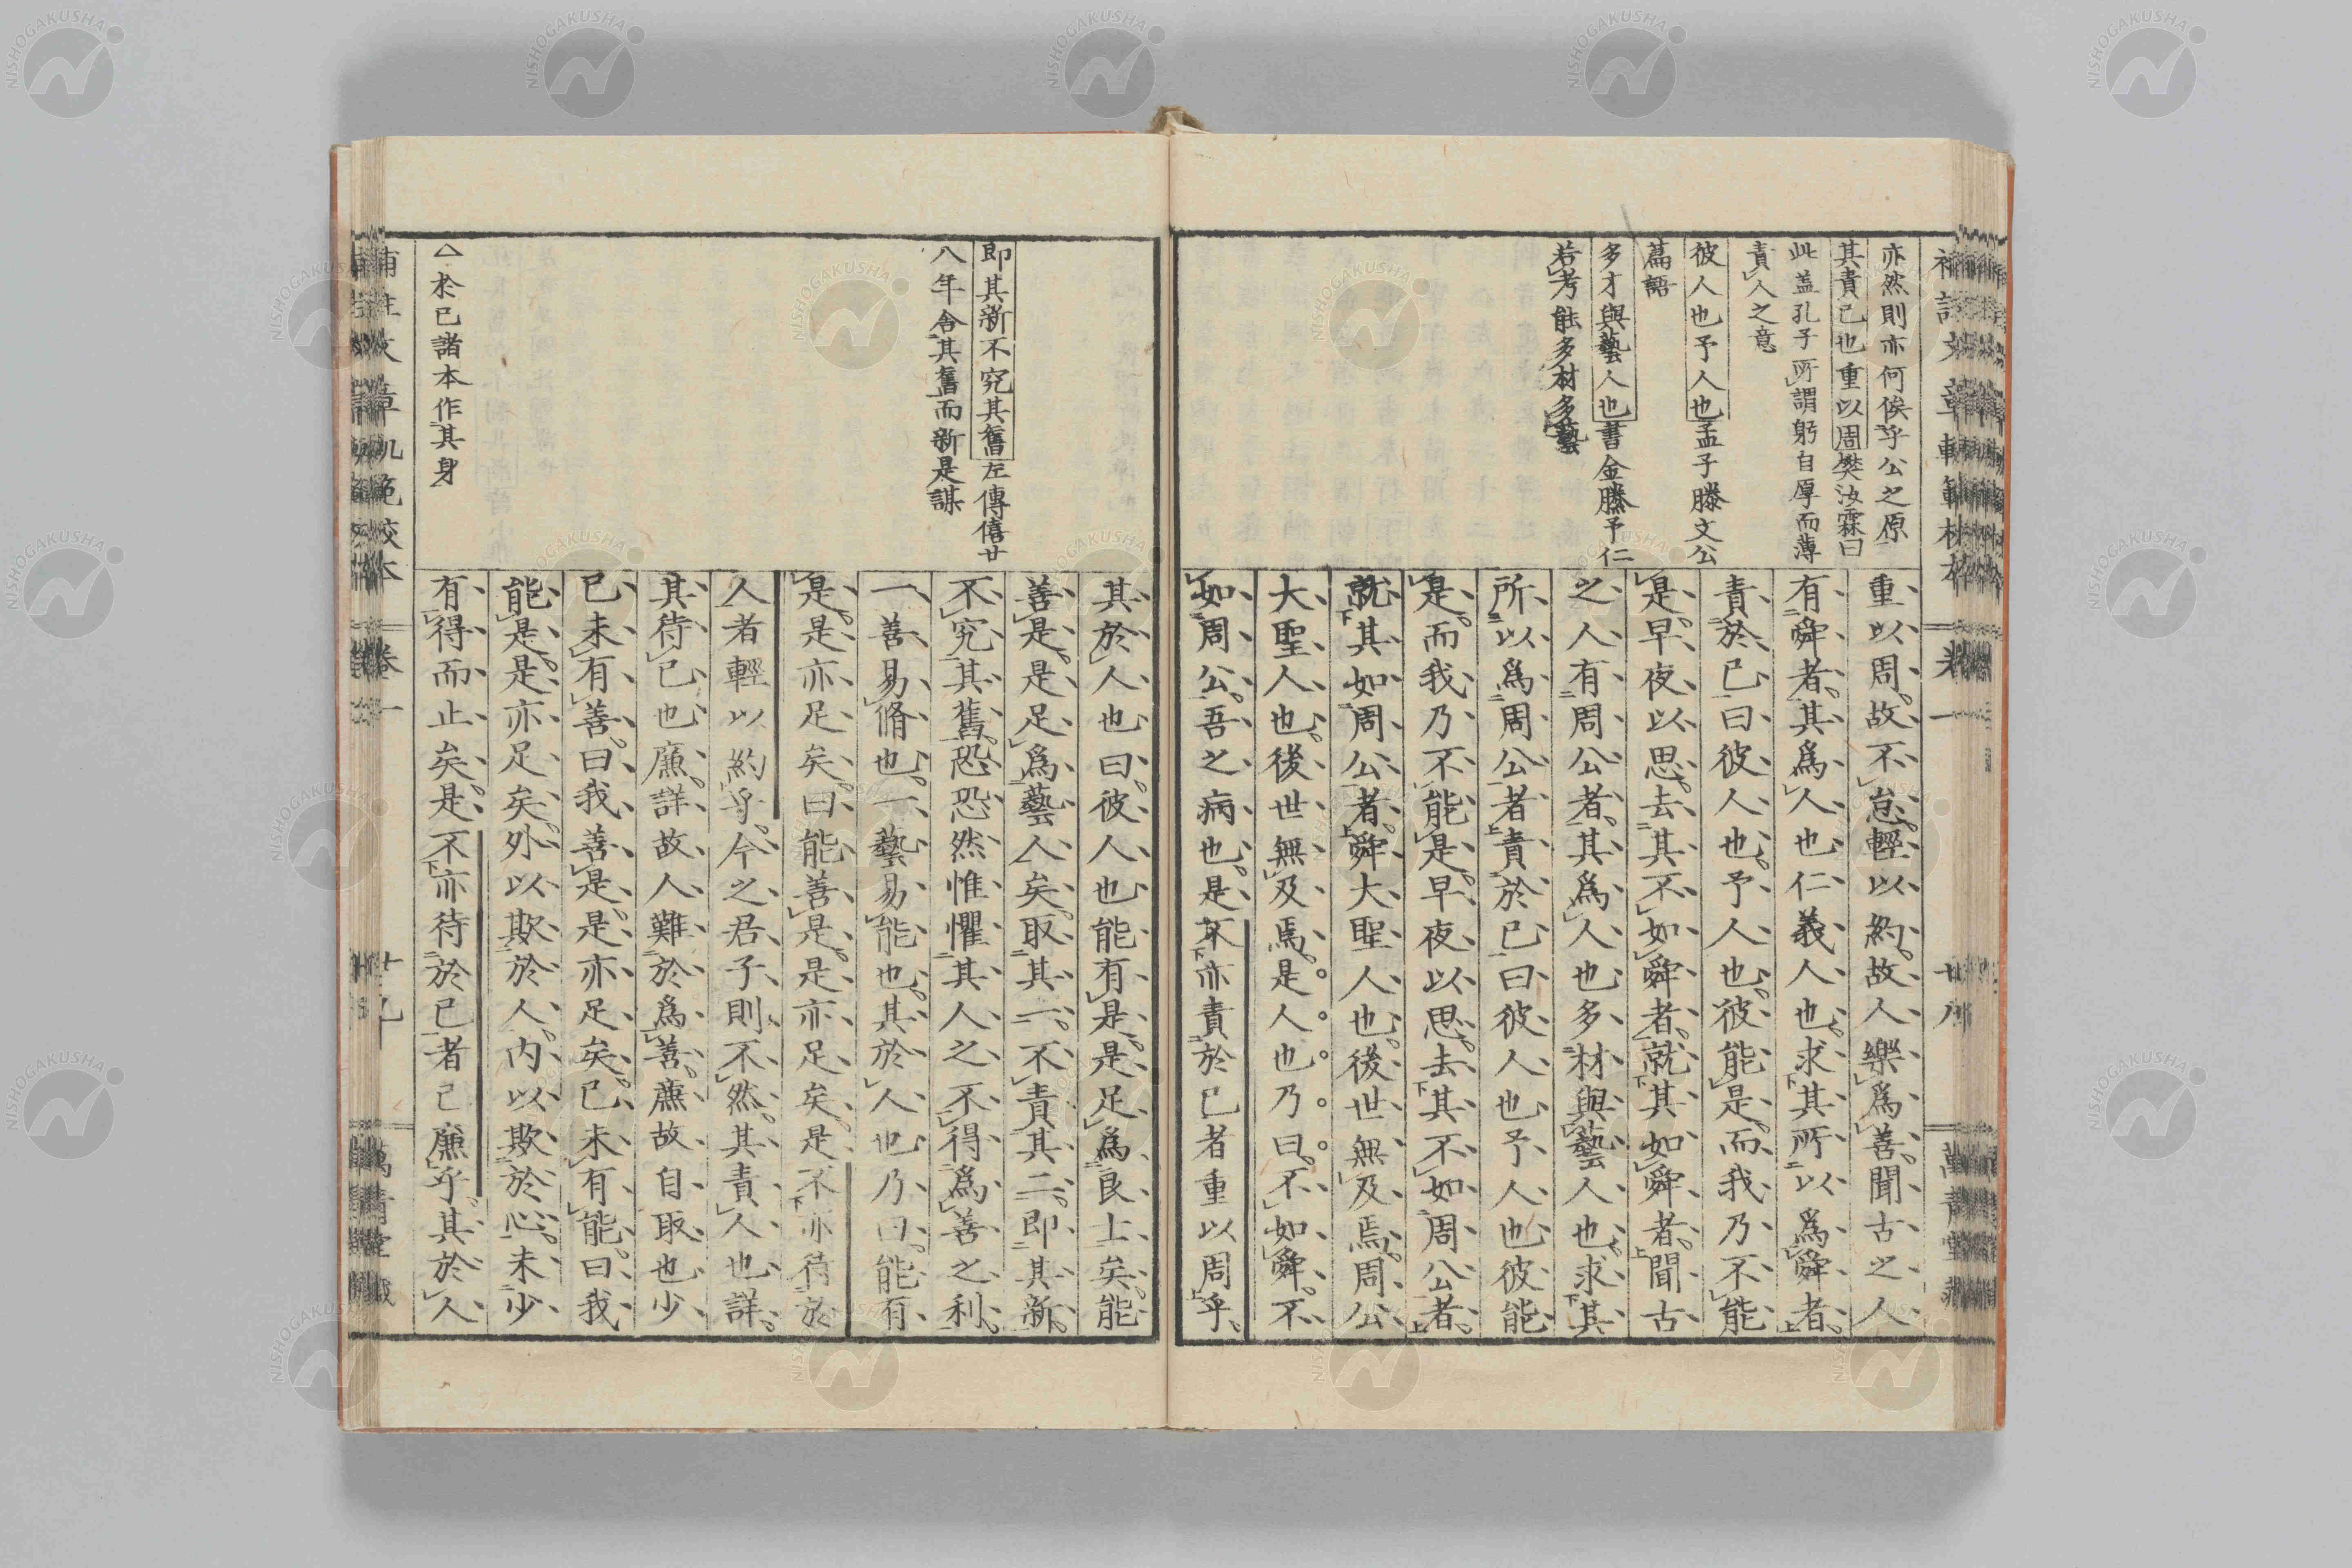 亦然則亦何俟乎公之原
其責己也重以周樊汝霖曰
此盖孔子所謂躬自厚而薄
責人之意
彼人也予人也孟子滕文公
篇語
多才與藝人也書金縢予仁
若考能多材多藝
重以周。故不怠。輕以約。故人樂爲善。聞古之人
有舜者。其爲人也仁義人也。求其所以爲舜者。
責於已曰彼人也。予人也。彼能是。而我乃不能
是。早夜以思。去其不如舜者。就其如舜者。聞古
之人有周公者。其爲人也多材與藝人也。求其
所以爲周公者責於已曰彼人也予人也彼能
是。而我乃不能是。早夜以思。去其不如周公者。
就其如周公者。舜大聖人也。後世無及焉。周公
大聖人也。後世無及焉。是人也乃曰。不如舜。不
如周公。吾之病也。是不亦責於已者重以周乎。
即其新不究其舊左傳僖廿
八年舍其舊而新是謀
△於已諸本作其身
其於人也曰。彼人也能有是。是足爲良士矣。能
善是。是足爲藝人矣。取其一。不責其二。即其新。
不究其舊。恐恐然惟懼其人之不得爲善之利。
一善易脩也。一藝易能也。其於人也乃曰。能有
是。是亦足矣。曰能善是。是亦足矣。是不亦待於
人者輕以約乎。今之君子則不然。其責人也詳。
其待已也廉。詳故人難於爲善。廉故自取也少
已未有善。曰我善是。是亦足矣。已未有能。曰我
能是。是亦足矣。外以欺於人。内以欺於心。未少
有得而止矣。是不亦待於已者已廉乎。其於人
補註文章軌範校本 卷一 廿九
NISHOGAKUSHA